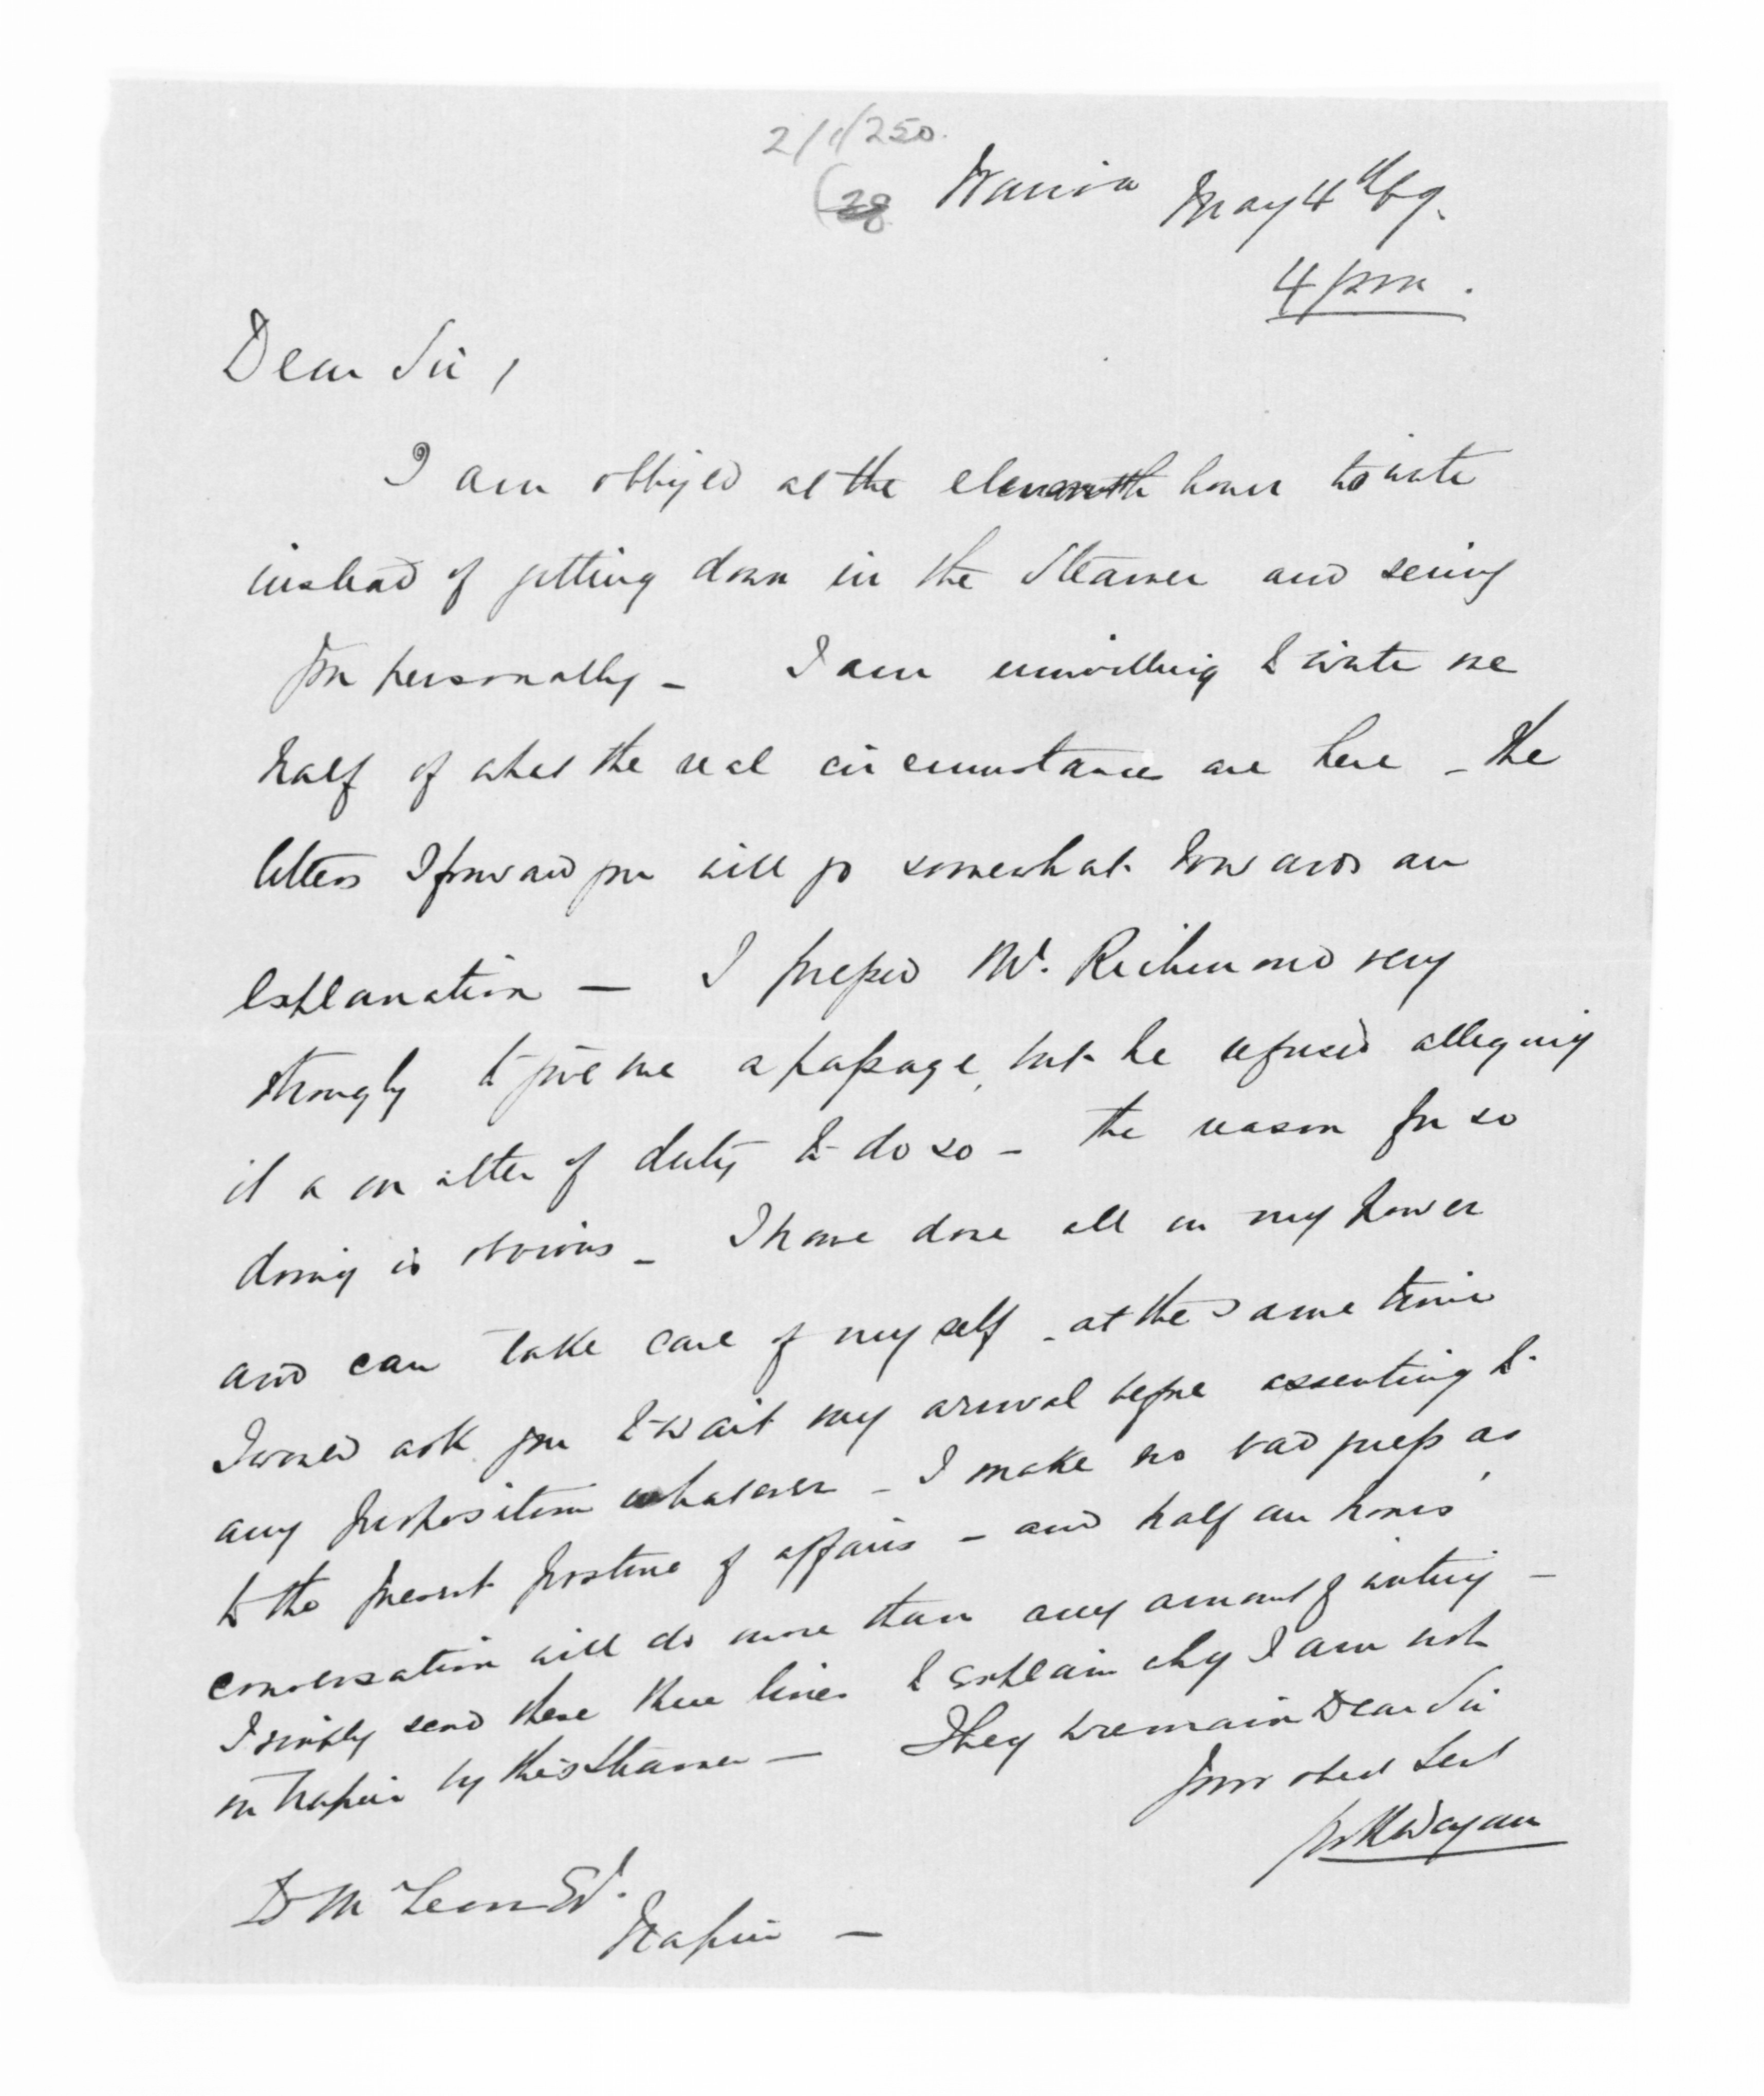 2/1/250.
28 Wairoa May 4th 69.
4 pm.
Dear Sir,
I am obliged at the eleventh hour to write
instead of getting down in the Steamer and seeing
you personally - I am unwilling to write one
half of what the real circumstances are here - the
letters I forward you will go somewhat towards an
explanation - I pressed Mr. Richmond very
strongly to give me a passage, but he refused alleging
it a matter of duty to do so - the reason for so
doing is obvious - I have done all in my power
and can take care of myself - at the same time
I would ask you to wait my arrival before assenting to
any proposition whatever - I make no bad guess as
to the present posture of affairs - and half an hours
conversation will do more than any amount of writing -
I simply send these three lines to explain why I am not
in Napier by this Steamer - I beg to remain Dear Sir
your obedt Sert
Deighan
D McLean Esq.
Napier -